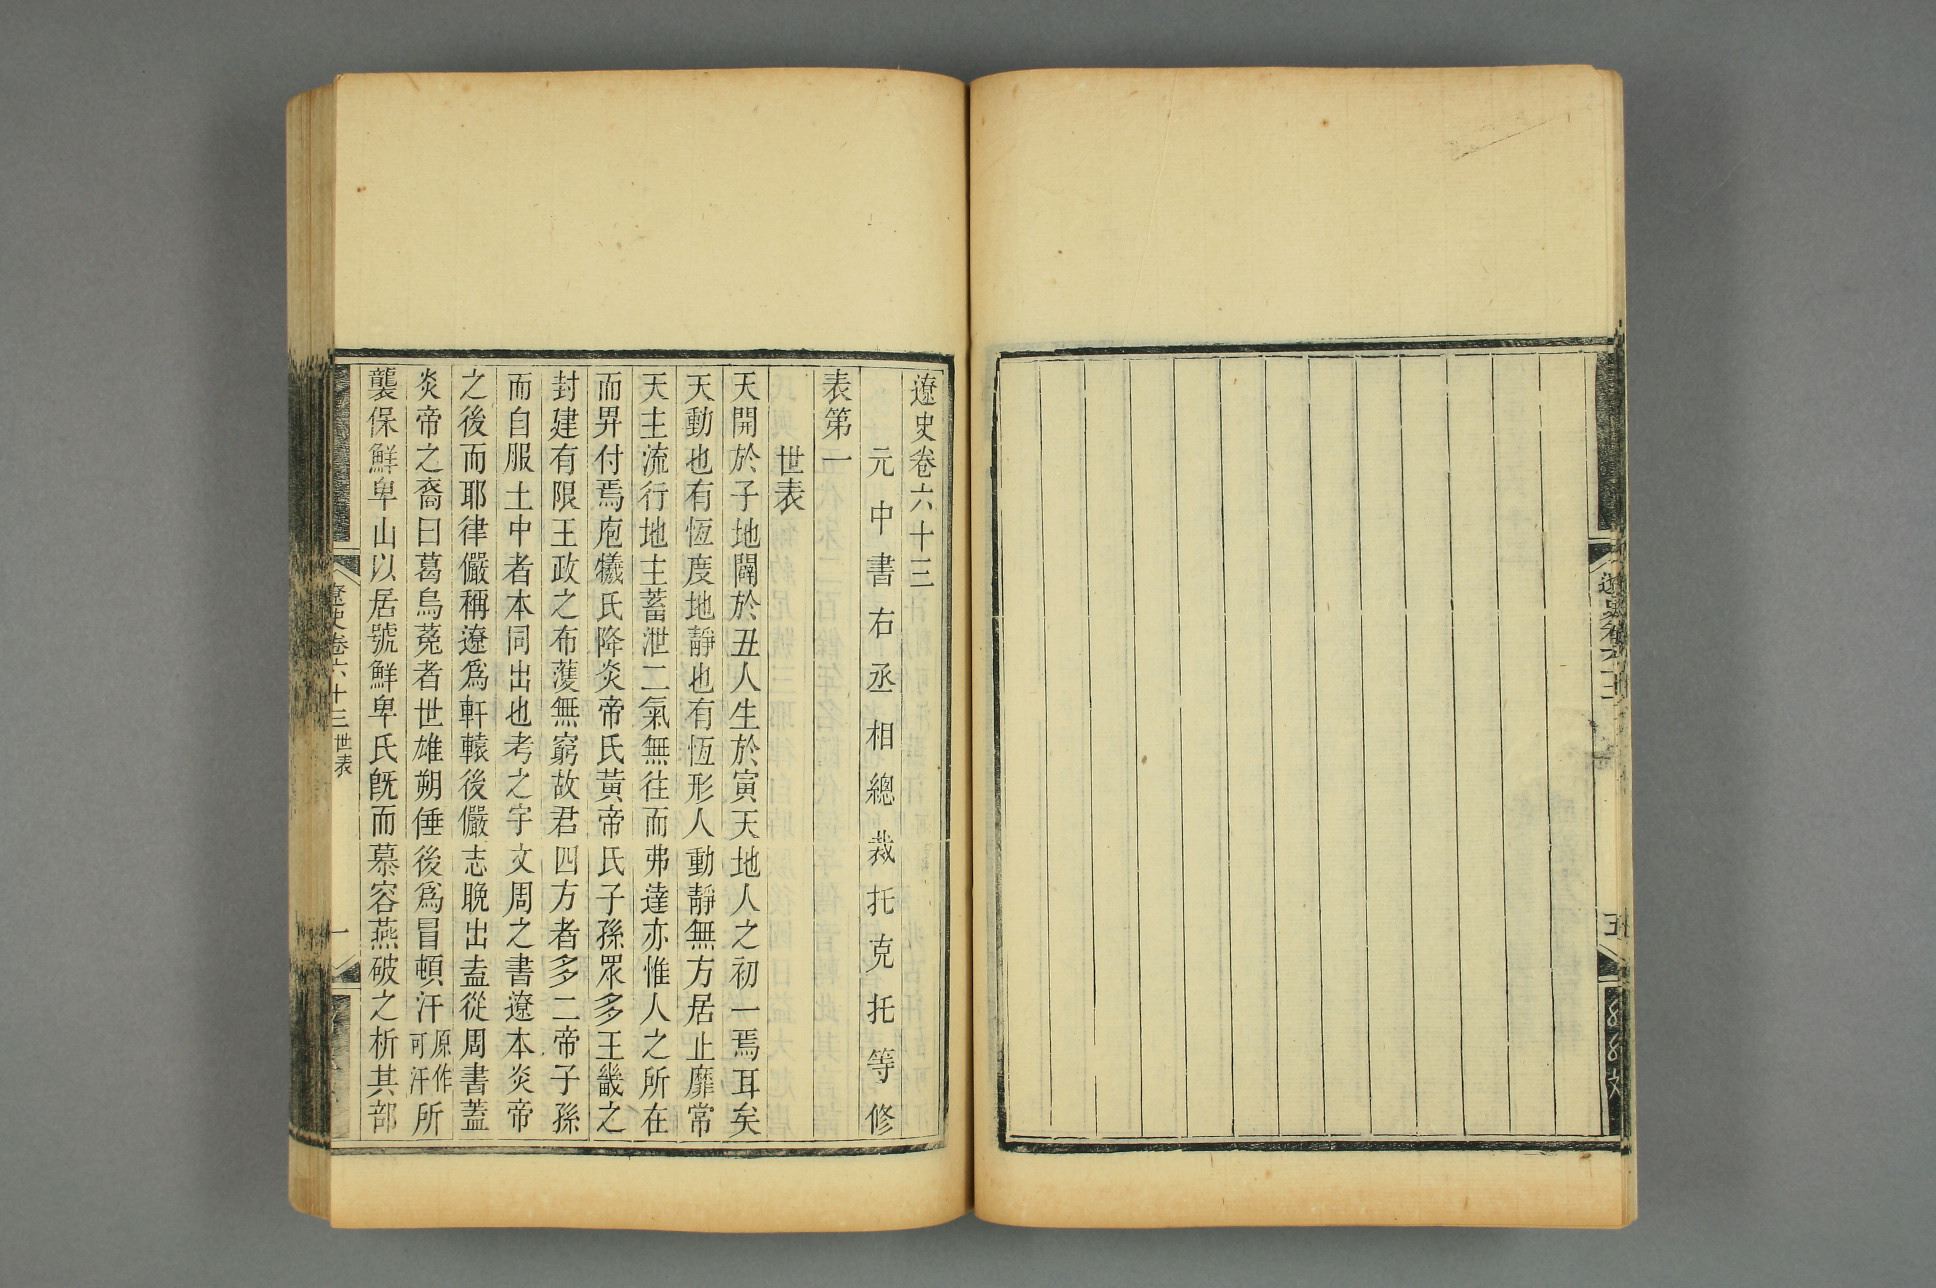 遼史卷六十三
元中書右丞相總裁托克托等修
表第一
世表
天開於子地闢於丑人生於寅天地人之初一焉耳矣
天動也有恆度地靜也有恆形人動靜無方居止靡常
天主流行地主蓄泄二氣無往而弗達亦惟人之所在
而畀付焉庖犧氏降炎帝氏黃帝氏子孫眾多王畿之
封建有限王政之布濩無窮故君四方者多二帝子孫
而自服土中者本同出也考之宇文周之書遼本炎帝
之後而耶律儼稱遼爲軒轅後儼志晚出盍從周書蓋
炎帝之裔曰葛烏菟者世雄朔陲後爲冒頓汗原作可汗所
襲保鮮卑山以居號鮮卑氏旣而慕容燕破之析其部
遼史卷六十三 世表 一